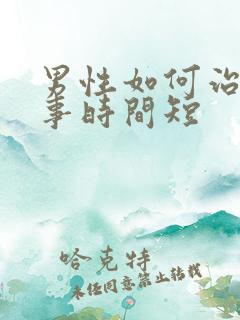 男性如何治
事時間短
哈克特
未經同意禁止轉載